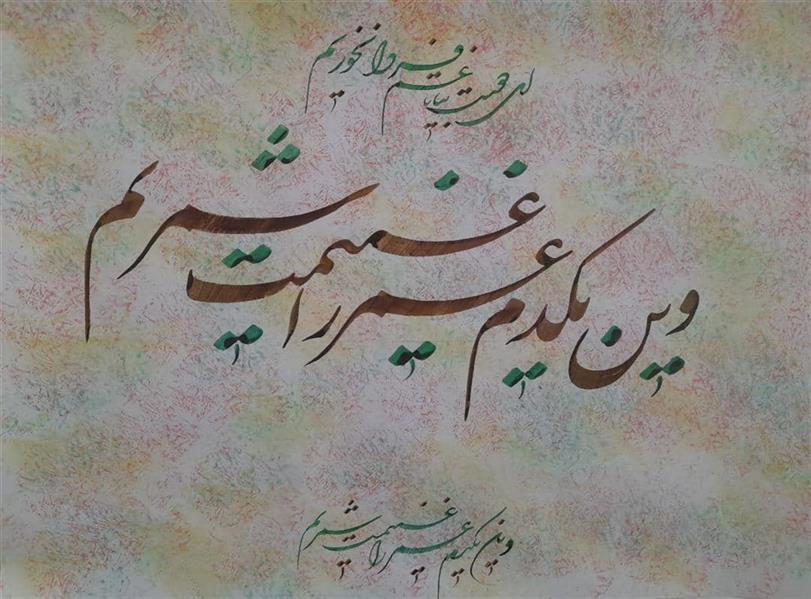 ای دوست بیا تا غم فردا نخوریم
وین یکدم عمر را غنیمت شمریم
وین یکدم عمر را غنیمت شمریم